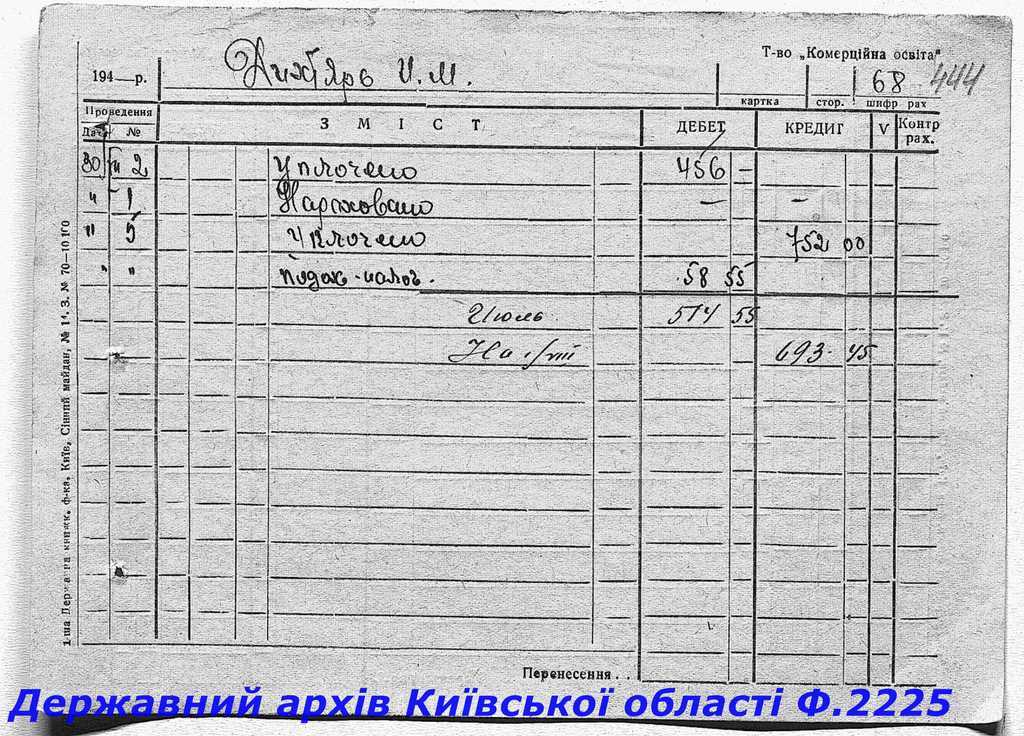 Т-во „Комерційна освіта"
194—р. И. М. 68 444
картка стор. шифр рах
Проведення З М І С Т ДЕБЕТ КРЕДИТ V Контр рах.
Дата №
30 2 Уплочено 456 —
" 1 — —
" 5 Уплочено 752 00
" " подох. налог. 58 55
Июль 514 55
На 1/VIII 693 45
Перенесення . .
1-ша Державна книжк. ф-ка, Київ, Сінний майдан, № 14. З. № 70—10.100
Державний архів Київської області Ф.2225